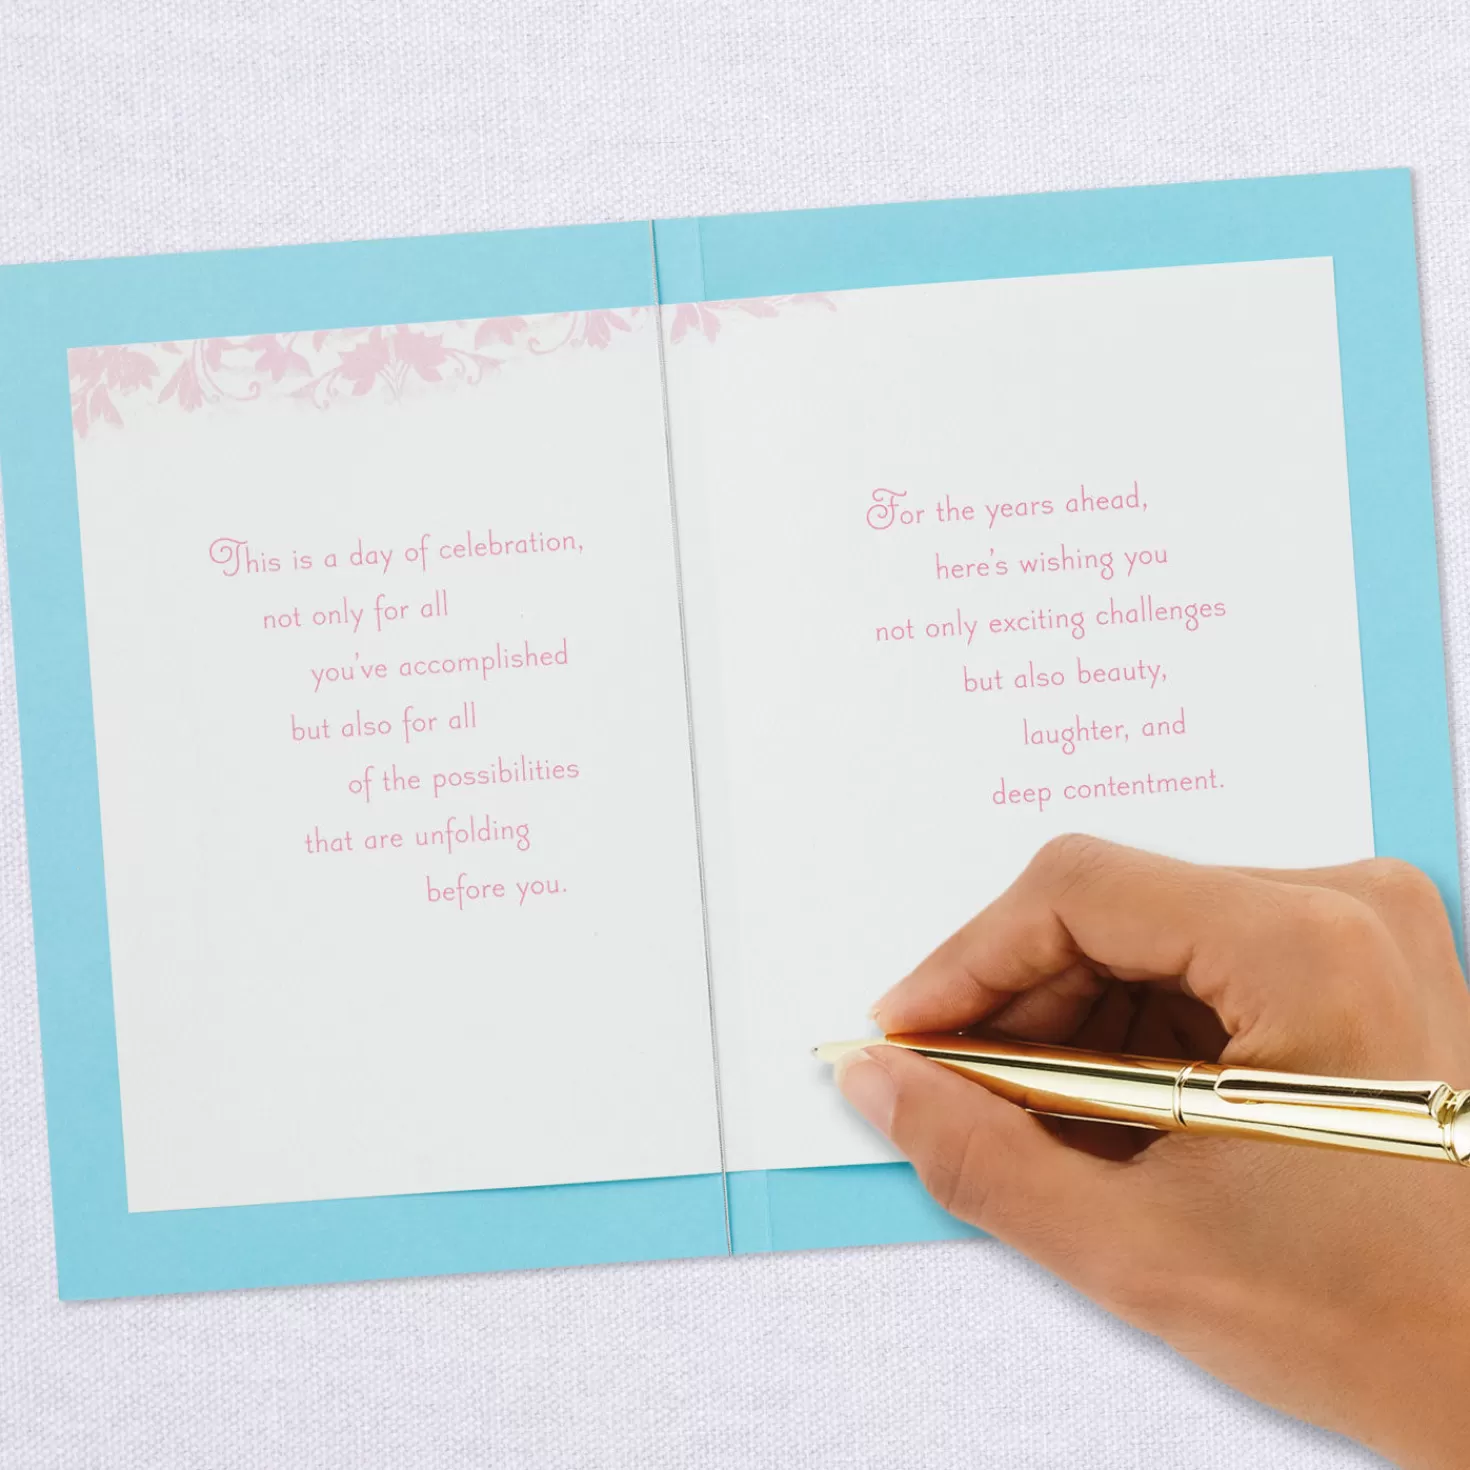 This is a day of celebration,
not only for all
you've accomplished
but also for all
of the possibilities
that are unfolding
before you.
For the years ahead,
here's wishing you
not only exciting challenges
but also beauty,
laughter, and
deep contentment.